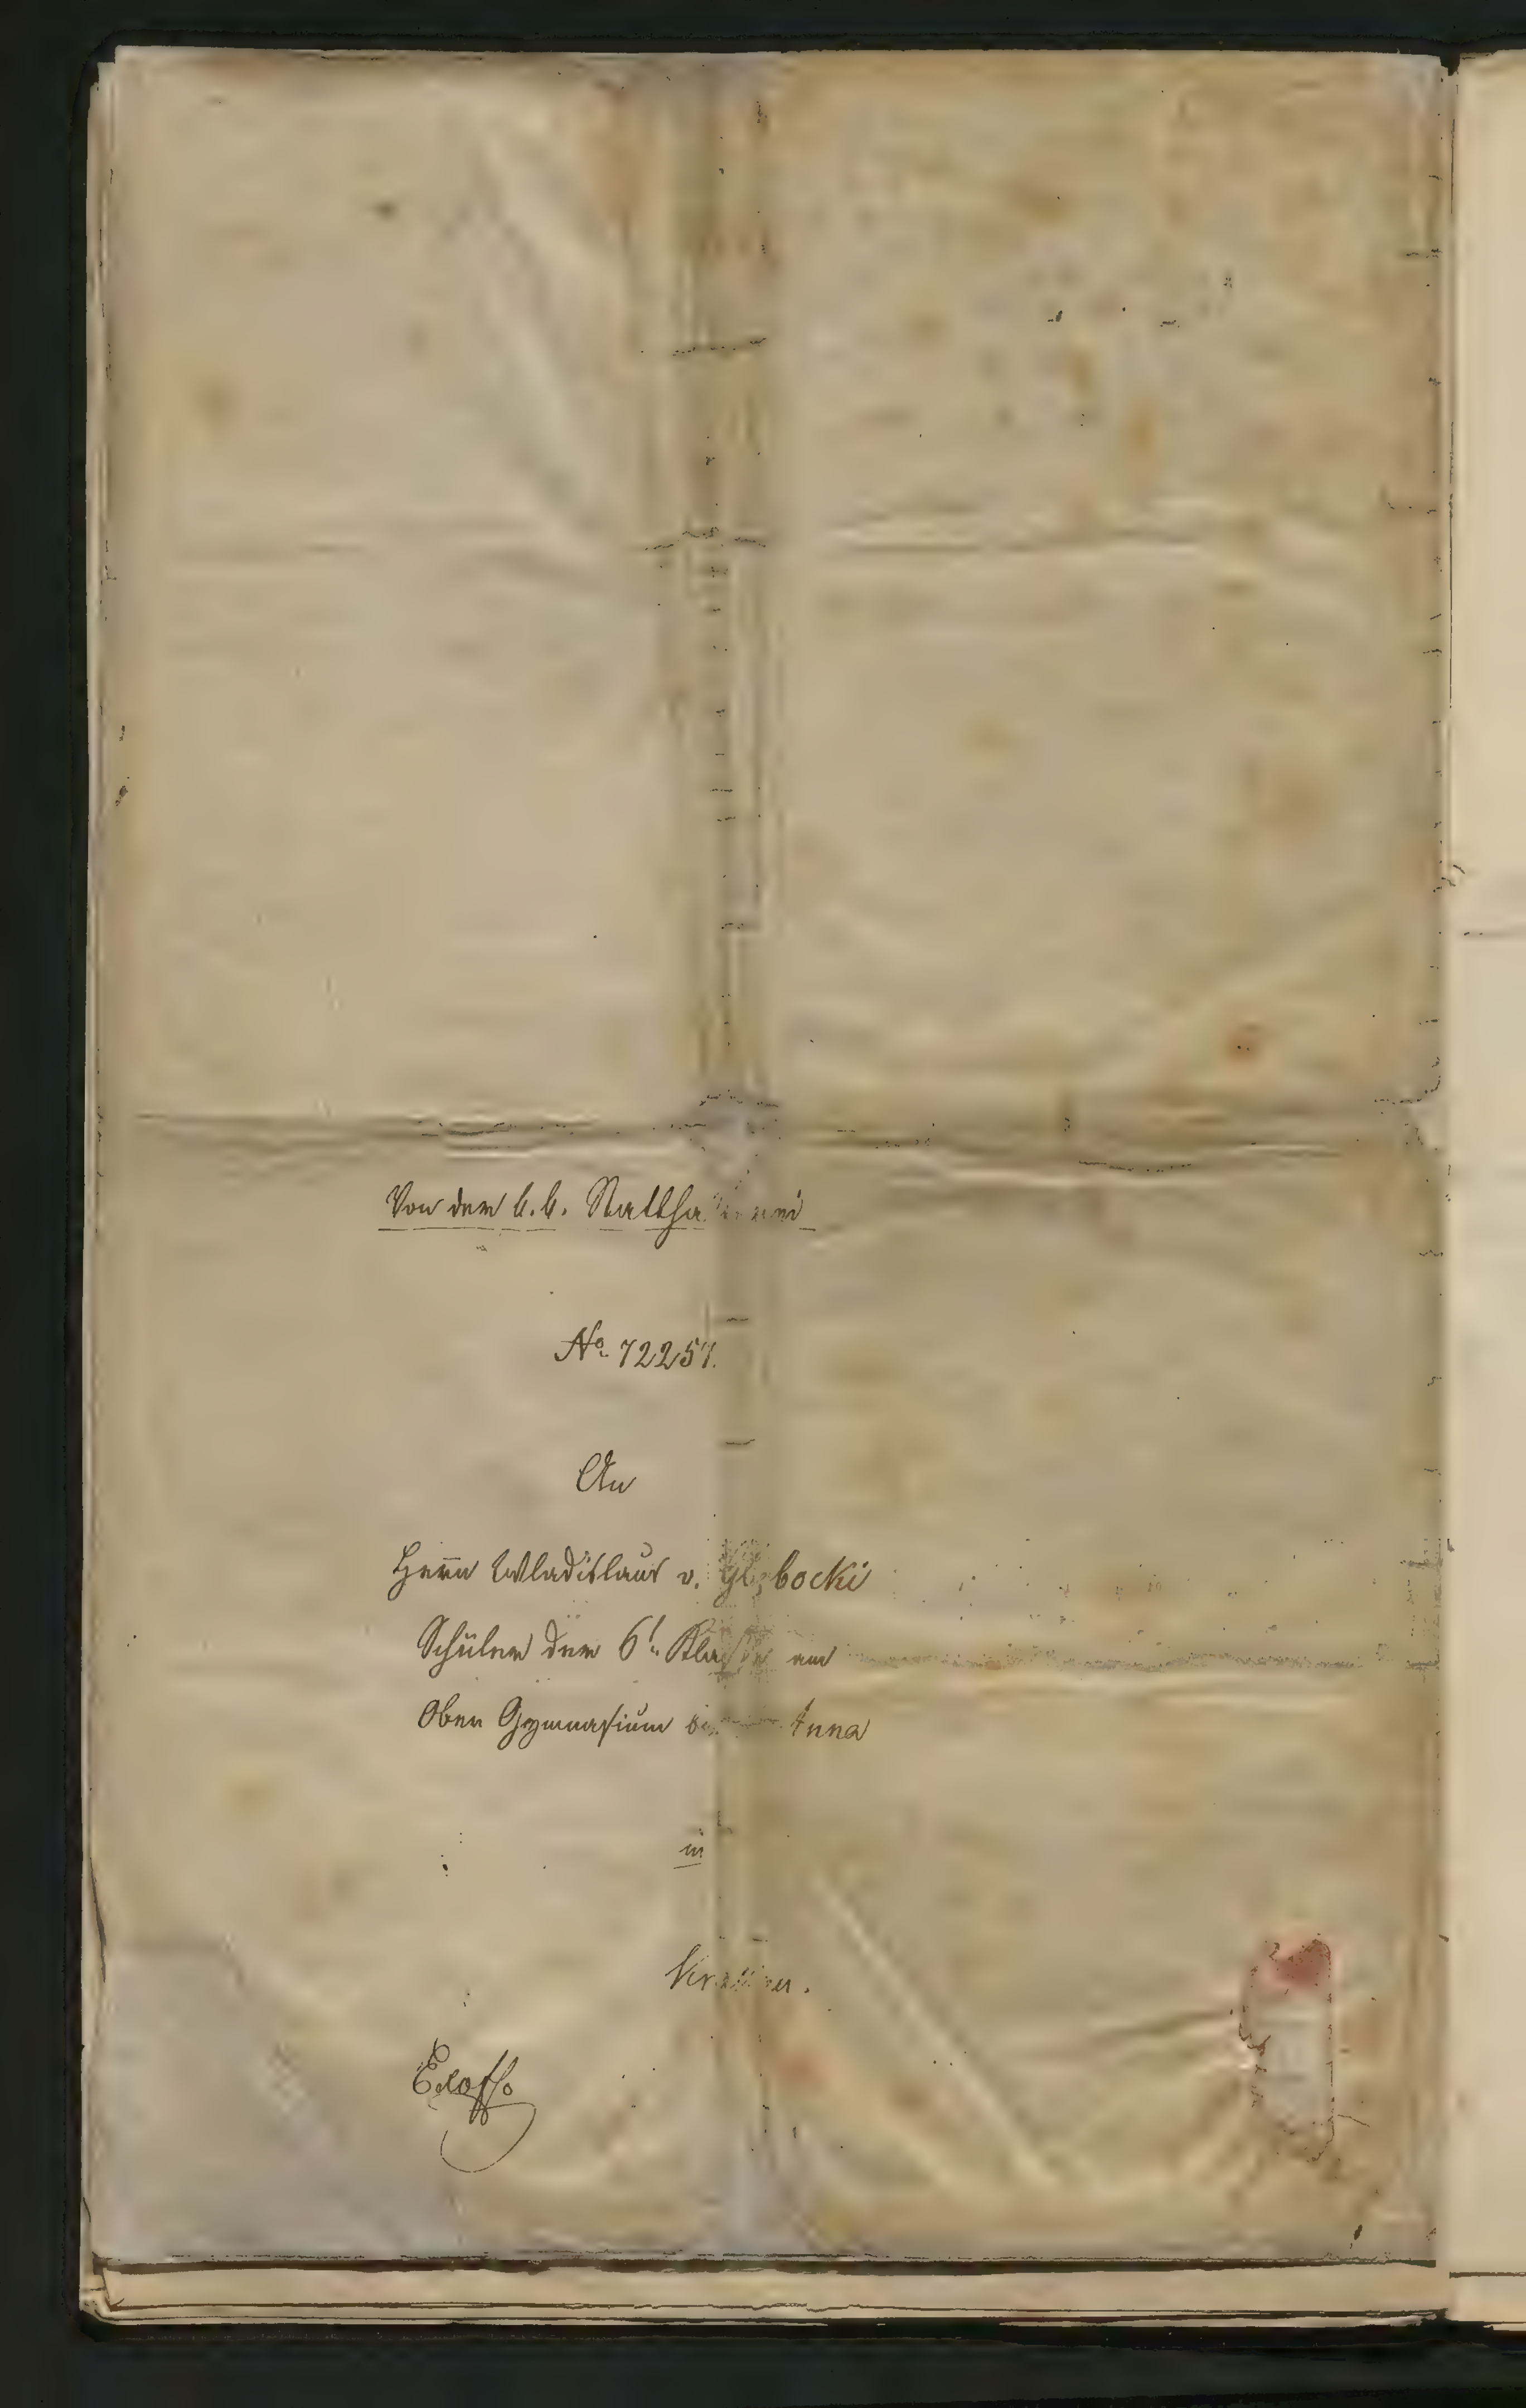 Von der k. k. Statthalterei
No. 72257.
An
Herrn Wladislaus v. Głębocki
Schüler der 6t. Klasse am
Ober Gymnasium bei Anna
in
Krakau.
Exoffo